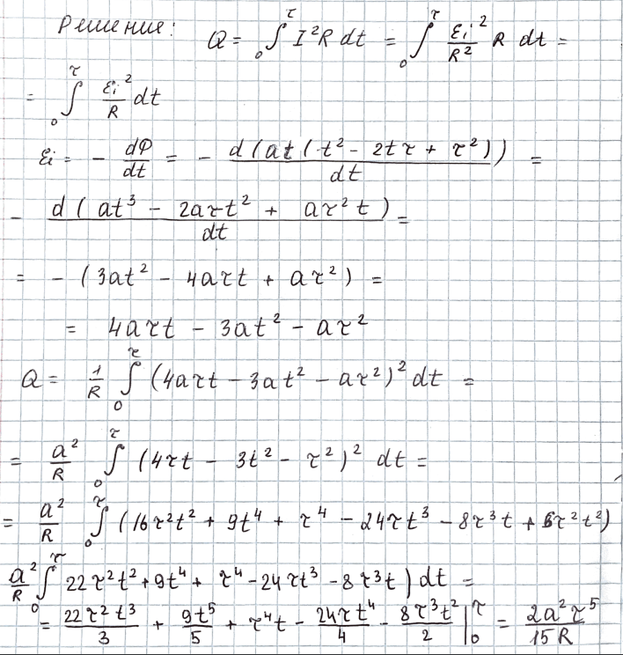 Решение: Q = ₀∫^τ I²R dt = ₀∫^τ εi²/R² R dt =
= ₀∫^τ εi²/R dt
εi = - dФ/dt = - d(at(t² - 2tτ + τ²))/dt =
- d(at³ - 2aτt² + aτ²t)/dt =
= - (3at² - 4aτt + aτ²) =
= 4aτt - 3at² - aτ²
Q = 1/R ₀∫^τ (4aτt - 3at² - aτ²)² dt =
= a²/R ₀∫^τ (4τt - 3t² - τ²)² dt =
= a²/R ₀∫^τ (16τ²t² + 9t⁴ + τ⁴ - 24τt³ - 8τ³t + 6τ²t²)
a²/R ₀∫^τ 22τ²t² + 9t⁴ + τ⁴ - 24τt³ - 8τ³t) dt =
= 22τ²t³/3 + 9t⁵/5 + τ⁴t - 24τt⁴/4 - 8τ³t²/2 |₀^τ = 2a²τ⁵/15R